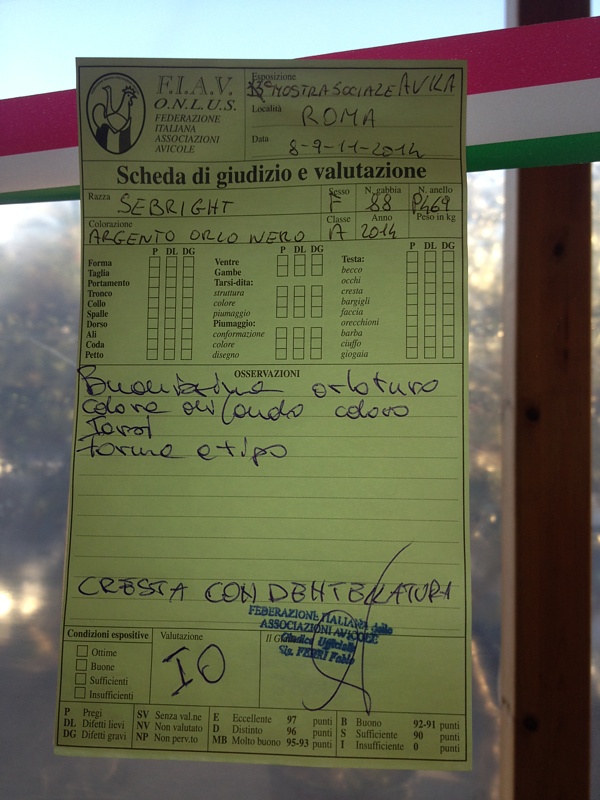 F.I.A.V.
O.N.L.U.S.
FEDERAZIONE
ITALIANA
ASSOCIAZIONI
AVICOLE
Esposizione
MOSTRA SOCIALE AVILA
Località
ROMA
Data
8-9-11-2014
Scheda di giudizio e valutazione
Razza SEBRIGHT
Sesso F
N. gabbia 88
N. anello P469
Colorazione
ARGENTO ORLO NERO
Classe A
Anno 2014
Peso in kg
P DL DG
Forma
Taglia
Portamento
Tronco
Collo
Spalle
Dorso
Ali
Coda
Petto
P DL DG
Ventre
Gambe
Tarsi-dita:
struttura
colore
piumaggio
Piumaggio:
conformazione
colore
disegno
P DL DG
Testa:
becco
occhi
cresta
bargigli
faccia
orecchioni
barba
ciuffo
giogaia
OSSERVAZIONI
Buonissima orlatura
colore di fondo colore
Tarsi
Forma e tipo
CRESTA CON DENTELLATURA
FEDERAZIONE ITALIANA delle
ASSOCIAZIONI AVICOLE
Giudice Ufficiale
Sig. FERRI Fabio
Condizioni espositive
Ottime
Buone
Sufficienti
Insufficienti
Valutazione
Il
P Pregi
DL Difetti lievi
DG Difetti gravi
SV Senza val.ne
NV Non valutato
NP Non perv.to
E Eccellente 97 punti
D Distinto 96 punti
MB Molto buono 95-93 punti
B Buono 92-91 punti
S Sufficiente 90 punti
I Insufficiente 0 punti